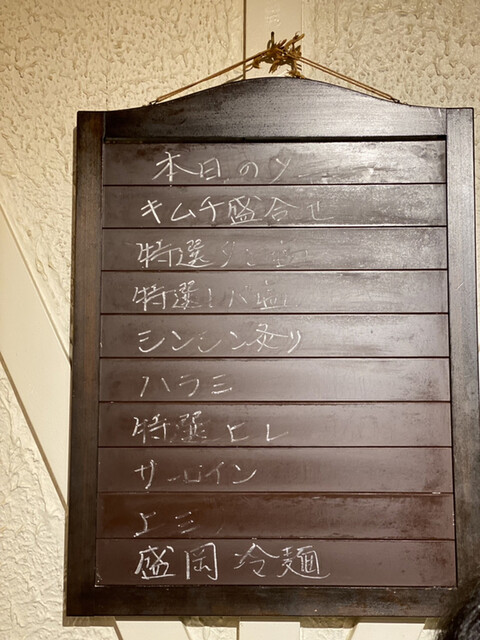 本日の
キムチ盛合せ
特選
特選レバ塩
シンシン炙り
ハラミ
特選ヒレ
サーロイン
上ミノ
盛岡冷麺